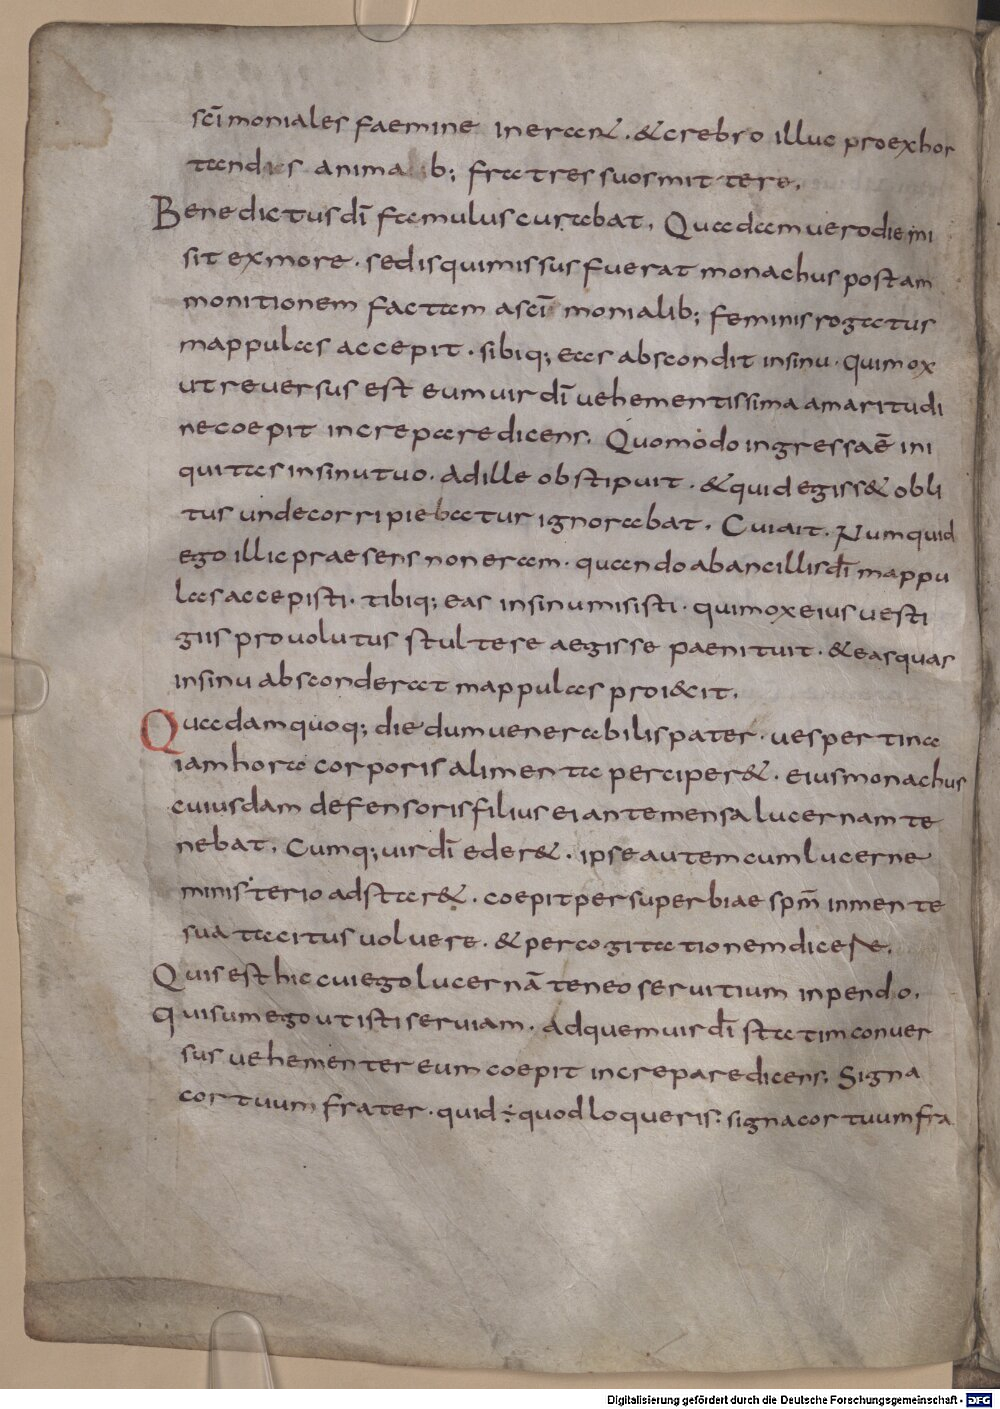 scīmoniales faemine inerant. &crebro illuc proexhor
tandis animabib; fratres suos mittere.
Benedictus dī famulus curabat. Quadam vero die mi
sit ex more. sed is qui missus fuerat monachus post am
monitionem factam a scī monialib; feminis rogatus
mappulas accepit. sibiq; eas abscondit in sinu. qui mox
ut reversus est eum vir dī vehementissima amaritudi
ne coepit increpare dicens. Quomodo ingressa ē ini
quitas in sinu tuo. ad ille obstipuit. & quid egiss& obli
tus unde corripiebatur ignorabat. Cui ait. Numquid
ego illic praesens non eram. quando ab ancillis dī mappu
las accepisti. tibiq; eas in sinu misisti. qui mox eius vesti
giis provolutus stulte se aegisse paenituit. & eas quas
in sinu absconderat mappulas proi&cit.
Quadam quoq; die dum venerabilis pater. vespertina
iam hora corporis alimenta perciper&. eius monachus
cuiusdam defensoris filius ei ante mensa lucernam te
nebat. Cumq; vir dī eder&. ipse autem cum lucerne
ministerio adstar&. coepit per superbiae spm̄ in mente
sua tacitus volvere. & per cogitationem dicere.
Quis est hic cui ego lucernā teneo servitium inpendo.
quis sum ego ut isti serviam. Ad quem vir dī statim conver
sus vehementer eum coepit increpare dicens; Signa
cor tuum frater. quid ÷ quod loqueris; signa cor tuum fra
Digitalisierung gefördert durch die Deutsche Forschungsgemeinschaft - DFG